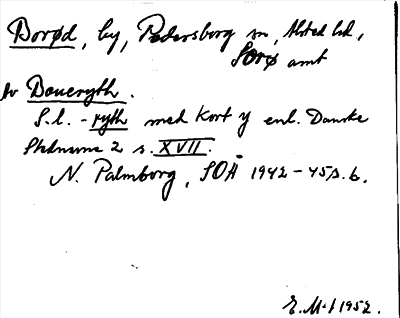 Dorød, by, Pedersborg sn, Alsted hd,
Sorø amt
hv Doueryth.
S.l. -ryth med kort y enl. Danske
Stednavne 2 s. XVII.
N. Palmborg, SOÄ 1942-45 s. 6.
E. M-l 1952.